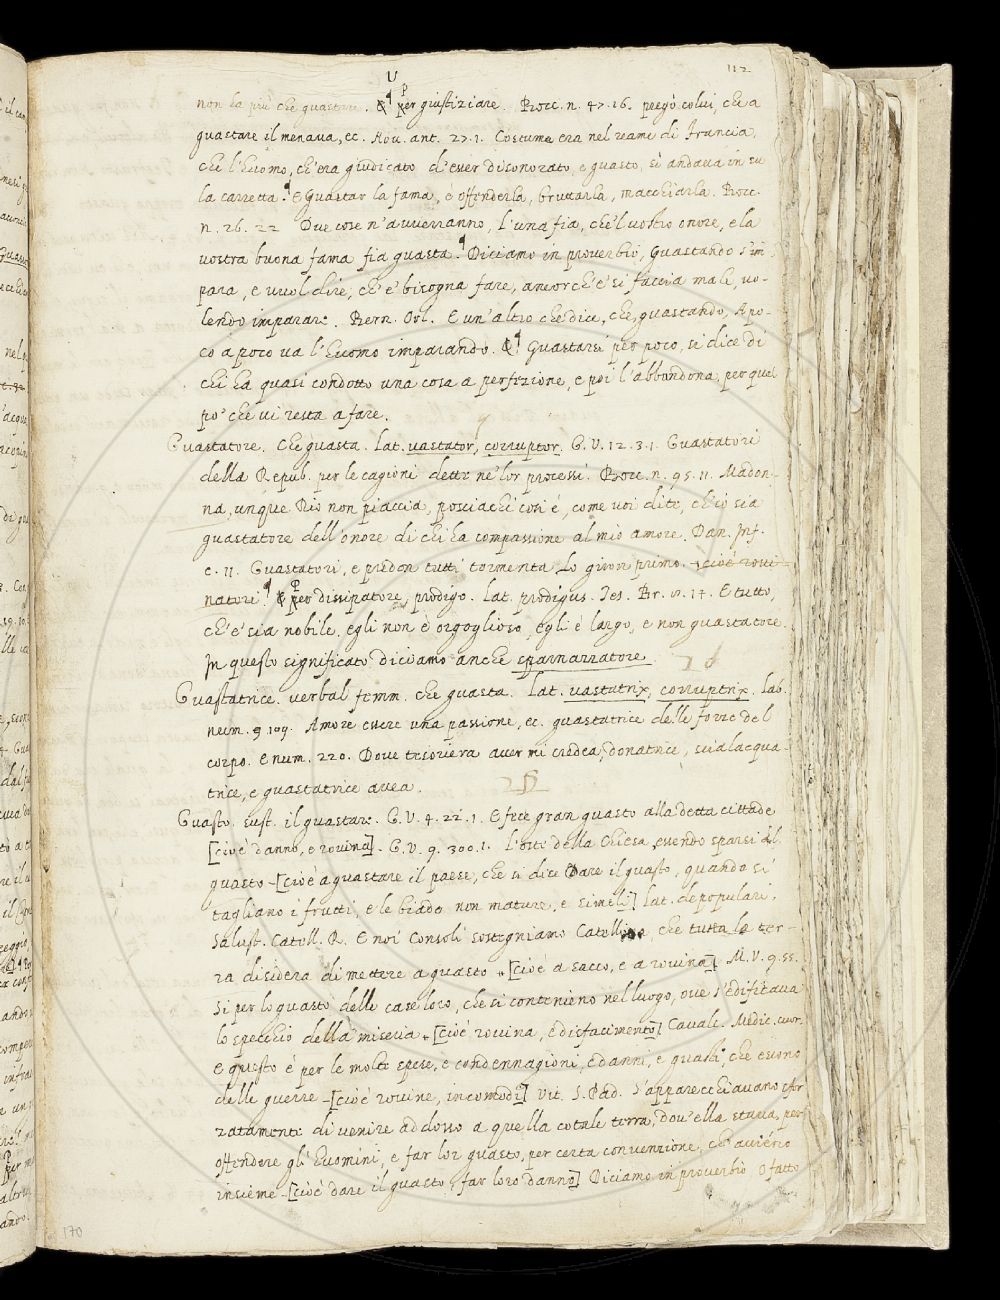 112
non ha più che guastare. ¶ Per giustiziare. Bocc. n. 47. 16. pregò colui, che a
guastare il menava, ec. Nov. ant. 27. 1. Costume era nel reame di Francia,
che l'huomo, ch'era giudicato d'esser disonorato, e guasto, si andava in su
la carretta. ¶ E Guastar la fama, è offenderla, bruttarla, macchiarla. Bocc.
n. 26. 22 Due cose n'avverranno, l'una fia, che'l vostro onore, e la
vostra buona fama fia guasta. ¶ Diciamo in proverbio, Guastando s'im
para, e vuol dire, ch'e' bisogna fare, ancorch'e' si faccia male, vo-
lendo imparare. Bern. Orl. E un'altro che dice, che, guastando, A po-
co a poco va l'huomo imparando. ¶ Guastarsi per poco, si dice di
chi ha quasi condotto una cosa a perfezione, e poi l'abbandona, per quel
po' che vi resta a fare.
Guastatore. Che guasta. Lat. vastator, corruptor. G. V. 12. 3. 1. Guastatori
della Repub. per le cagioni dette ne' lor processi. Bocc. n. 95. 11. Madon-
na, unque Dio non piaccia, posciachè così è, come voi dite, ch'io sia
guastatore dell'onore di chi ha compassione al mio amore. Dan. Inf.
c. 11. Guastatori, e predon tutti tormenta Lo giron primo. cioè rovi
natori. ¶ Per dissipatore, prodigo. Lat. prodigus. Tes. Br. 14. E tutto,
ch'e' sia nobile, egli non è orgoglioso, egli è largo, e non guastatore.
In questo significato diciamo anche sparnazzatore
Guastatrice. verbal femm. che guasta. Lat. vastatrix, corruptrix. Lab.
num. 109. Amore essere una passione, ec. guastatrice delle forze del
corpo. E num. 220. Dove tesoriera aver mi credea, donatrice, scialacqua-
trice, e guastatrice avea.
Guasto. sust. il guastare. G. V. 4. 22. 1. E fece gran guasto alla detta cittade
[cioè danno, e rovina]. G. V. 9. 300. 1. L'oste della Chiesa, essendo sparsi al
guasto [cioè a guastare il paese, che si dice Dare il guasto, quando si
tagliano i frutti, e le biade non mature, e simili] Lat. depopulari.
Salust. Catell. R. E noi Consoli sostegniamo Catellina, che tutta la ter-
ra disidera di mettere a guasto [cioè a sacco, e a rovina]. M. V. 9. 55.
Si per lo guasto delle case loro, che si contenieno nel luogo, ove s'edificava
lo specchio della miseria [cioè rovina, e disfacimento] Cavalc. Medic. cuor.
E questo è per le molte spese, e condennagioni, e danni, e guasti, che escono
delle guerre [cioè rovine, incomodi] Vit. S. Pad. S'apparecchiavano isfor
zatamente di venire addosso a quella cotale terra, dov'ella stava, per
offendere gli huomini, e far lor guasto, per certa convenzione, ch'avieno
insieme [cioè dare il guasto, far loro danno] Diciamo in proverbio O fatto
170